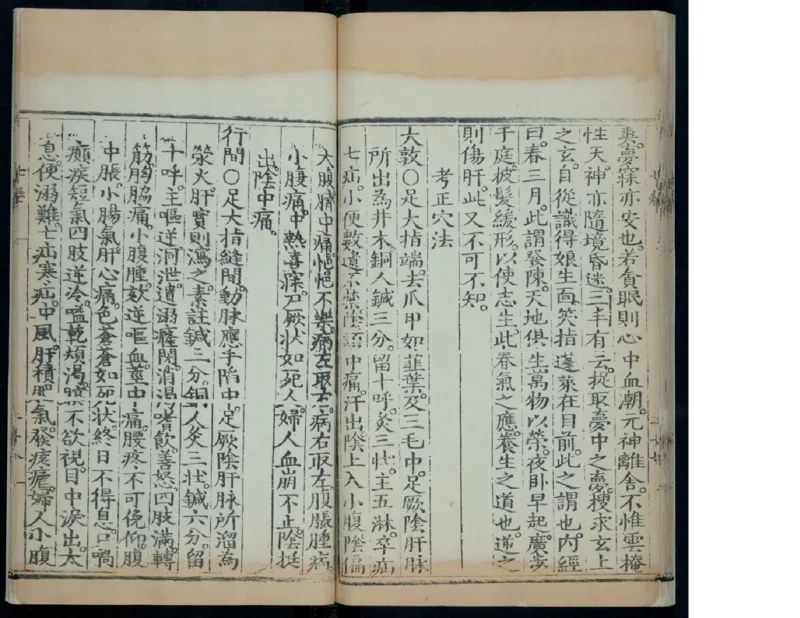 爽。夢寐亦安也。若貪眠則心中血潮。元神離舍。不惟雲掩
性天。神亦隨境昏迷。三丰有云。捉取夢中之夢。搜求玄上
之玄。自從識得娘生面。笑指蓬萊在目前。此之謂也。內經
曰。春三月。此謂發陳。天地俱生。萬物以榮。夜臥早起。廣步
于庭。披髮緩形。以使志生。此春氣之應。養生之道也。逆之
則傷肝。此又不可不知。
考正穴法
大敦〇足大指端。去爪甲如韭葉。及三毛中。足厥陰肝脉
所出為井木。銅人鍼三分。留十呼。灸三壯。主五淋。卒疝
七疝。小便數遺不禁。陰頭中痛。汗出。陰上入小腹。陰偏
大。腹臍中痛。悒悒不樂。病左取右。病右取左。腹脹腫病
小腹痛。中熱喜寐。尸厥狀如死人。婦人血崩不止。陰挺
出。陰中痛。
行間〇足大指縫間。動脉應手陷中。足厥陰肝脉所溜為
滎火。肝實則瀉之。素註鍼三分。銅人灸三壯。鍼六分。留
十呼。主嘔逆。洞泄。遺溺癃閉。消渴嗜飲。善怒。四肢滿。轉
筋。胸脇痛。小腹腫。欬逆嘔血。莖中痛。腰疼不可俛仰。腹
中脹。小腸氣。肝心痛。色蒼蒼如死狀。終日不得息。口喎
癲疾。短氣。四肢逆冷。嗌乾煩渴。瞑不欲視。目中淚出。太
息。便溺難。七疝寒疝。中風。肝積肥氣。發痎瘧。婦人小腹